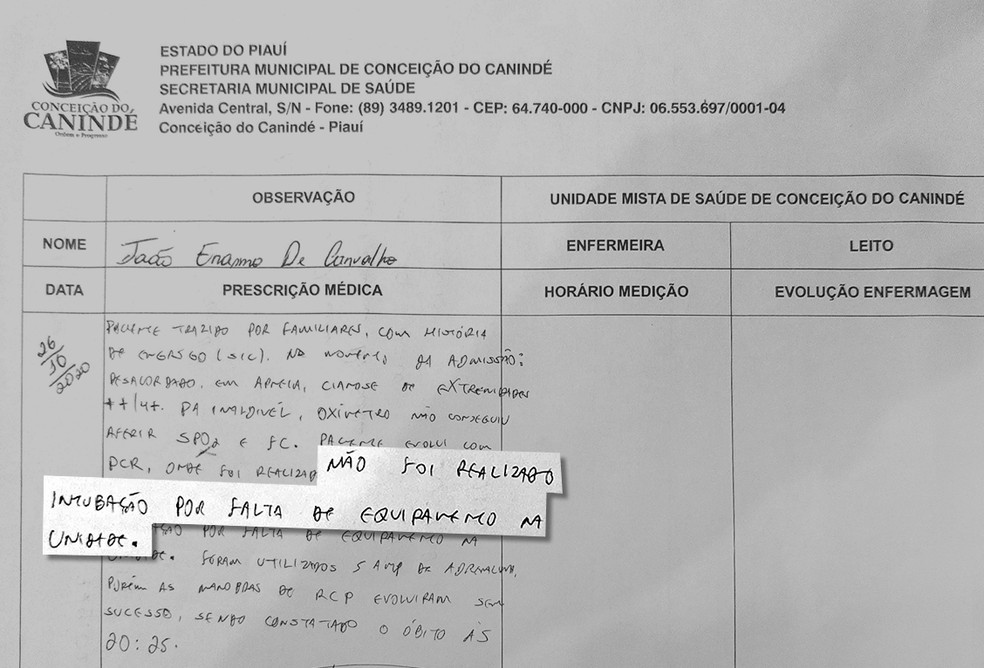 CONCEIÇÃO DO
CANINDÉ
Ordem e Progresso
ESTADO DO PIAUÍ
PREFEITURA MUNICIPAL DE CONCEIÇÃO DO CANINDÉ
SECRETARIA MUNICIPAL DE SAÚDE
Avenida Central, S/N - Fone: (89) 3489.1201 - CEP: 64.740-000 - CNPJ: 06.553.697/0001-04
Conceição do Canindé - Piauí
OBSERVAÇÃO
UNIDADE MISTA DE SAÚDE DE CONCEIÇÃO DO CANINDÉ
NOME
João Erasmo De Carvalho
ENFERMEIRA
LEITO
DATA
PRESCRIÇÃO MÉDICA
HORÁRIO MEDIÇÃO
EVOLUÇÃO ENFERMAGEM
26/10/2020
PACIENTE TRAZIDO POR FAMILIARES, COM HISTÓRIA
DE ENGASGO (SIC). NO MOMENTO DA ADMISSÃO:
DESACORDADO, EM APNEIA, CIANOSE DE EXTREMIDADES
++/4+. PA INAUDÍVEL, OXÍMETRO NÃO CONSEGUIU
AFERIR SPO2 E FC. PACIENTE EVOLUI COM
PCR, ONDE FOI REALIZAD
NÃO FOI REALIZADO
INTUBAÇÃO POR FALTA DE EQUIPAMENTO NA
UNIDADE.
AÇÃO POR FALTA DE EQUIPAMENTO NA
UNIDADE. FORAM UTILIZADOS 5 AMP DE ADRENALINA,
PORÉM AS MANOBRAS DE RCP EVOLUIRAM SEM
SUCESSO, SENDO CONSTATADO O ÓBITO ÀS
20:25.